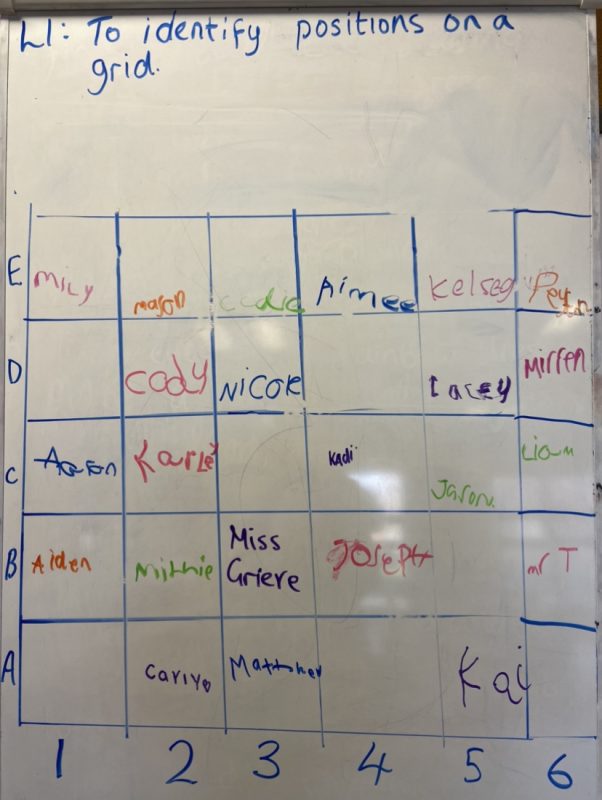 LI: To identify positions on a
grid.
E Mily mason Aimee Kelsey Peyton
D Cady Nicole Lacey Mirren
C Aaron Karle Kadi Jason Liam
B Aiden Miss Grieve Joseph mr T
A Matthew Kai
1 2 3 4 5 6